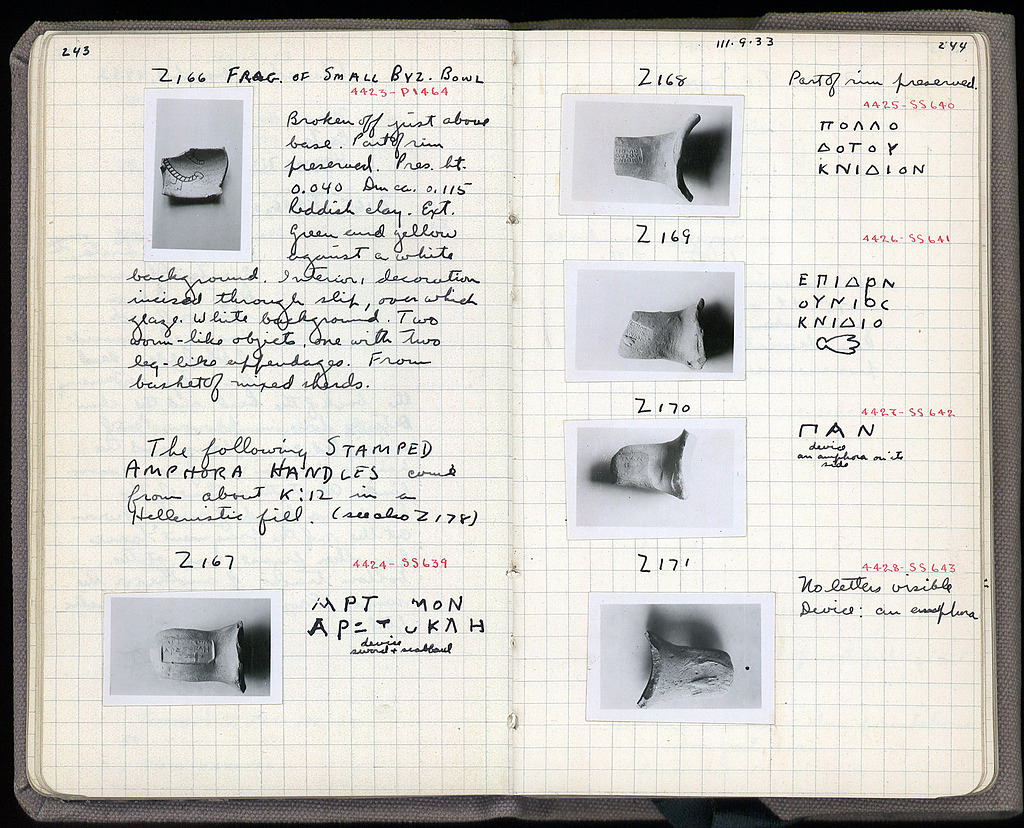 243
Z166 FRAG. OF SMALL BYZ. BOWL
4423-P1464
Broken off just above
base. Part of rim
preserved. Pres. ht.
0.040 Dm ca. 0.115
Reddish clay. Ext.
green and yellow
against a white
background. Interior, decoration
incised through slip, over which
glaze. White background. Two
worm-like objects, one with two
leg-like appendages. From
basket of mixed sherds.
The following STAMPED
AMPHORA HANDLES come
from about K:12 in a
Hellenistic fill. (see also Z178)
Z167
4424-SS639
ΑΡΤ ΜΟΝ
ΑΡ
ΚΛΗ
device
sword + scabbard
111.9.33
244
Z168
Part of rim preserved.
4425-SS640
ΠΟΛΛΟ
ΔΟΤΟΥ
ΚΝΙΔΙΟΝ
Z169
4426-SS641
ΕΠΙΔΡΝ
ΟΥΝΙΟC
ΚΝΙΔΙΟ
Z170
4427-SS642
ΠΑΝ
device
an amphora on its
side
Z171
4428-SS643
No letters visible
Device: an amphora